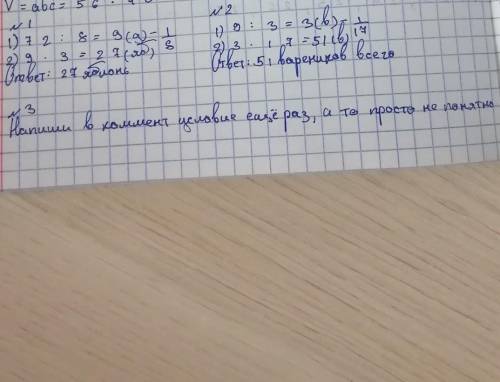 V = abc = 56 ·
№1
1) 72 : 8 = 9 (я) – 1/8
2) 9 · 3 = 27 (яб)
Ответ: 27 яблонь
№2
1) 9 : 3 = 3 (в) – 1/17
2) 3 · 17 = 51 (в)
Ответ: 51 вареников всего
№3
Напиши в коммент условие ещё раз, а то просто не понятно